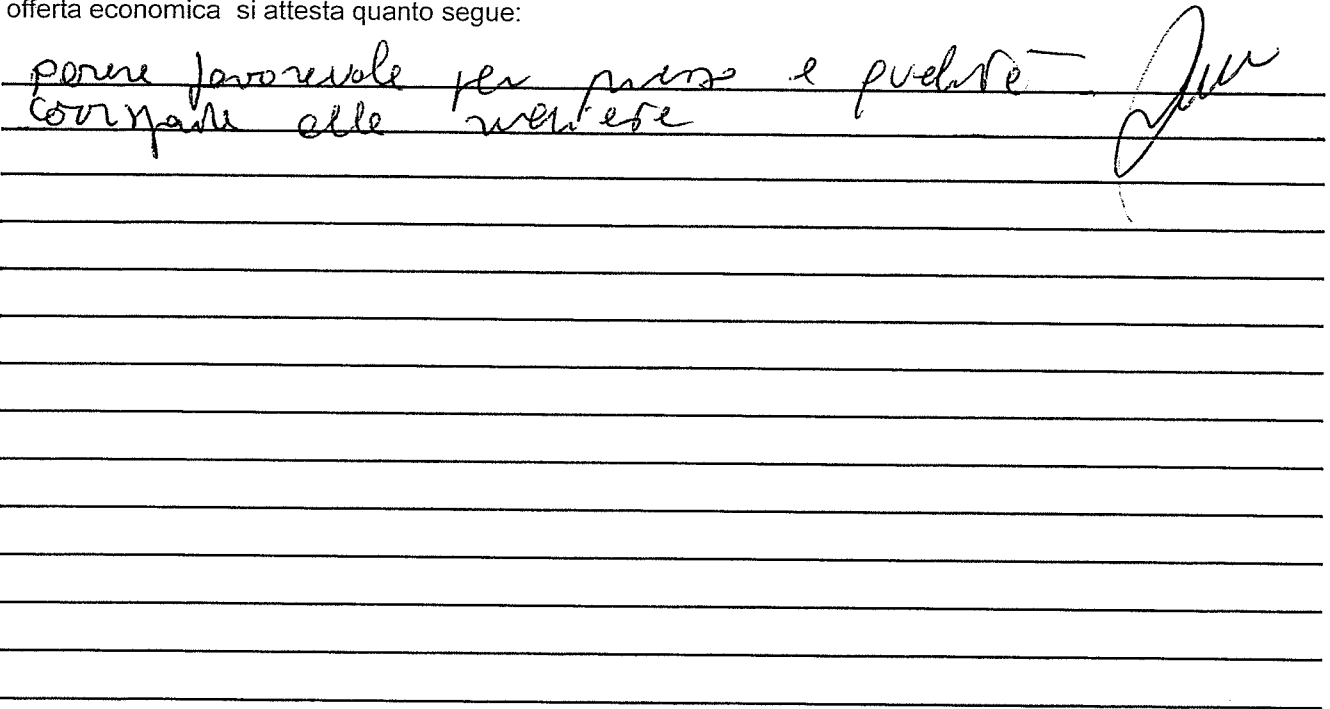 offerta economica si attesta quanto segue:
parere favorevole per prezzo e qualità
corrispande alle richieste